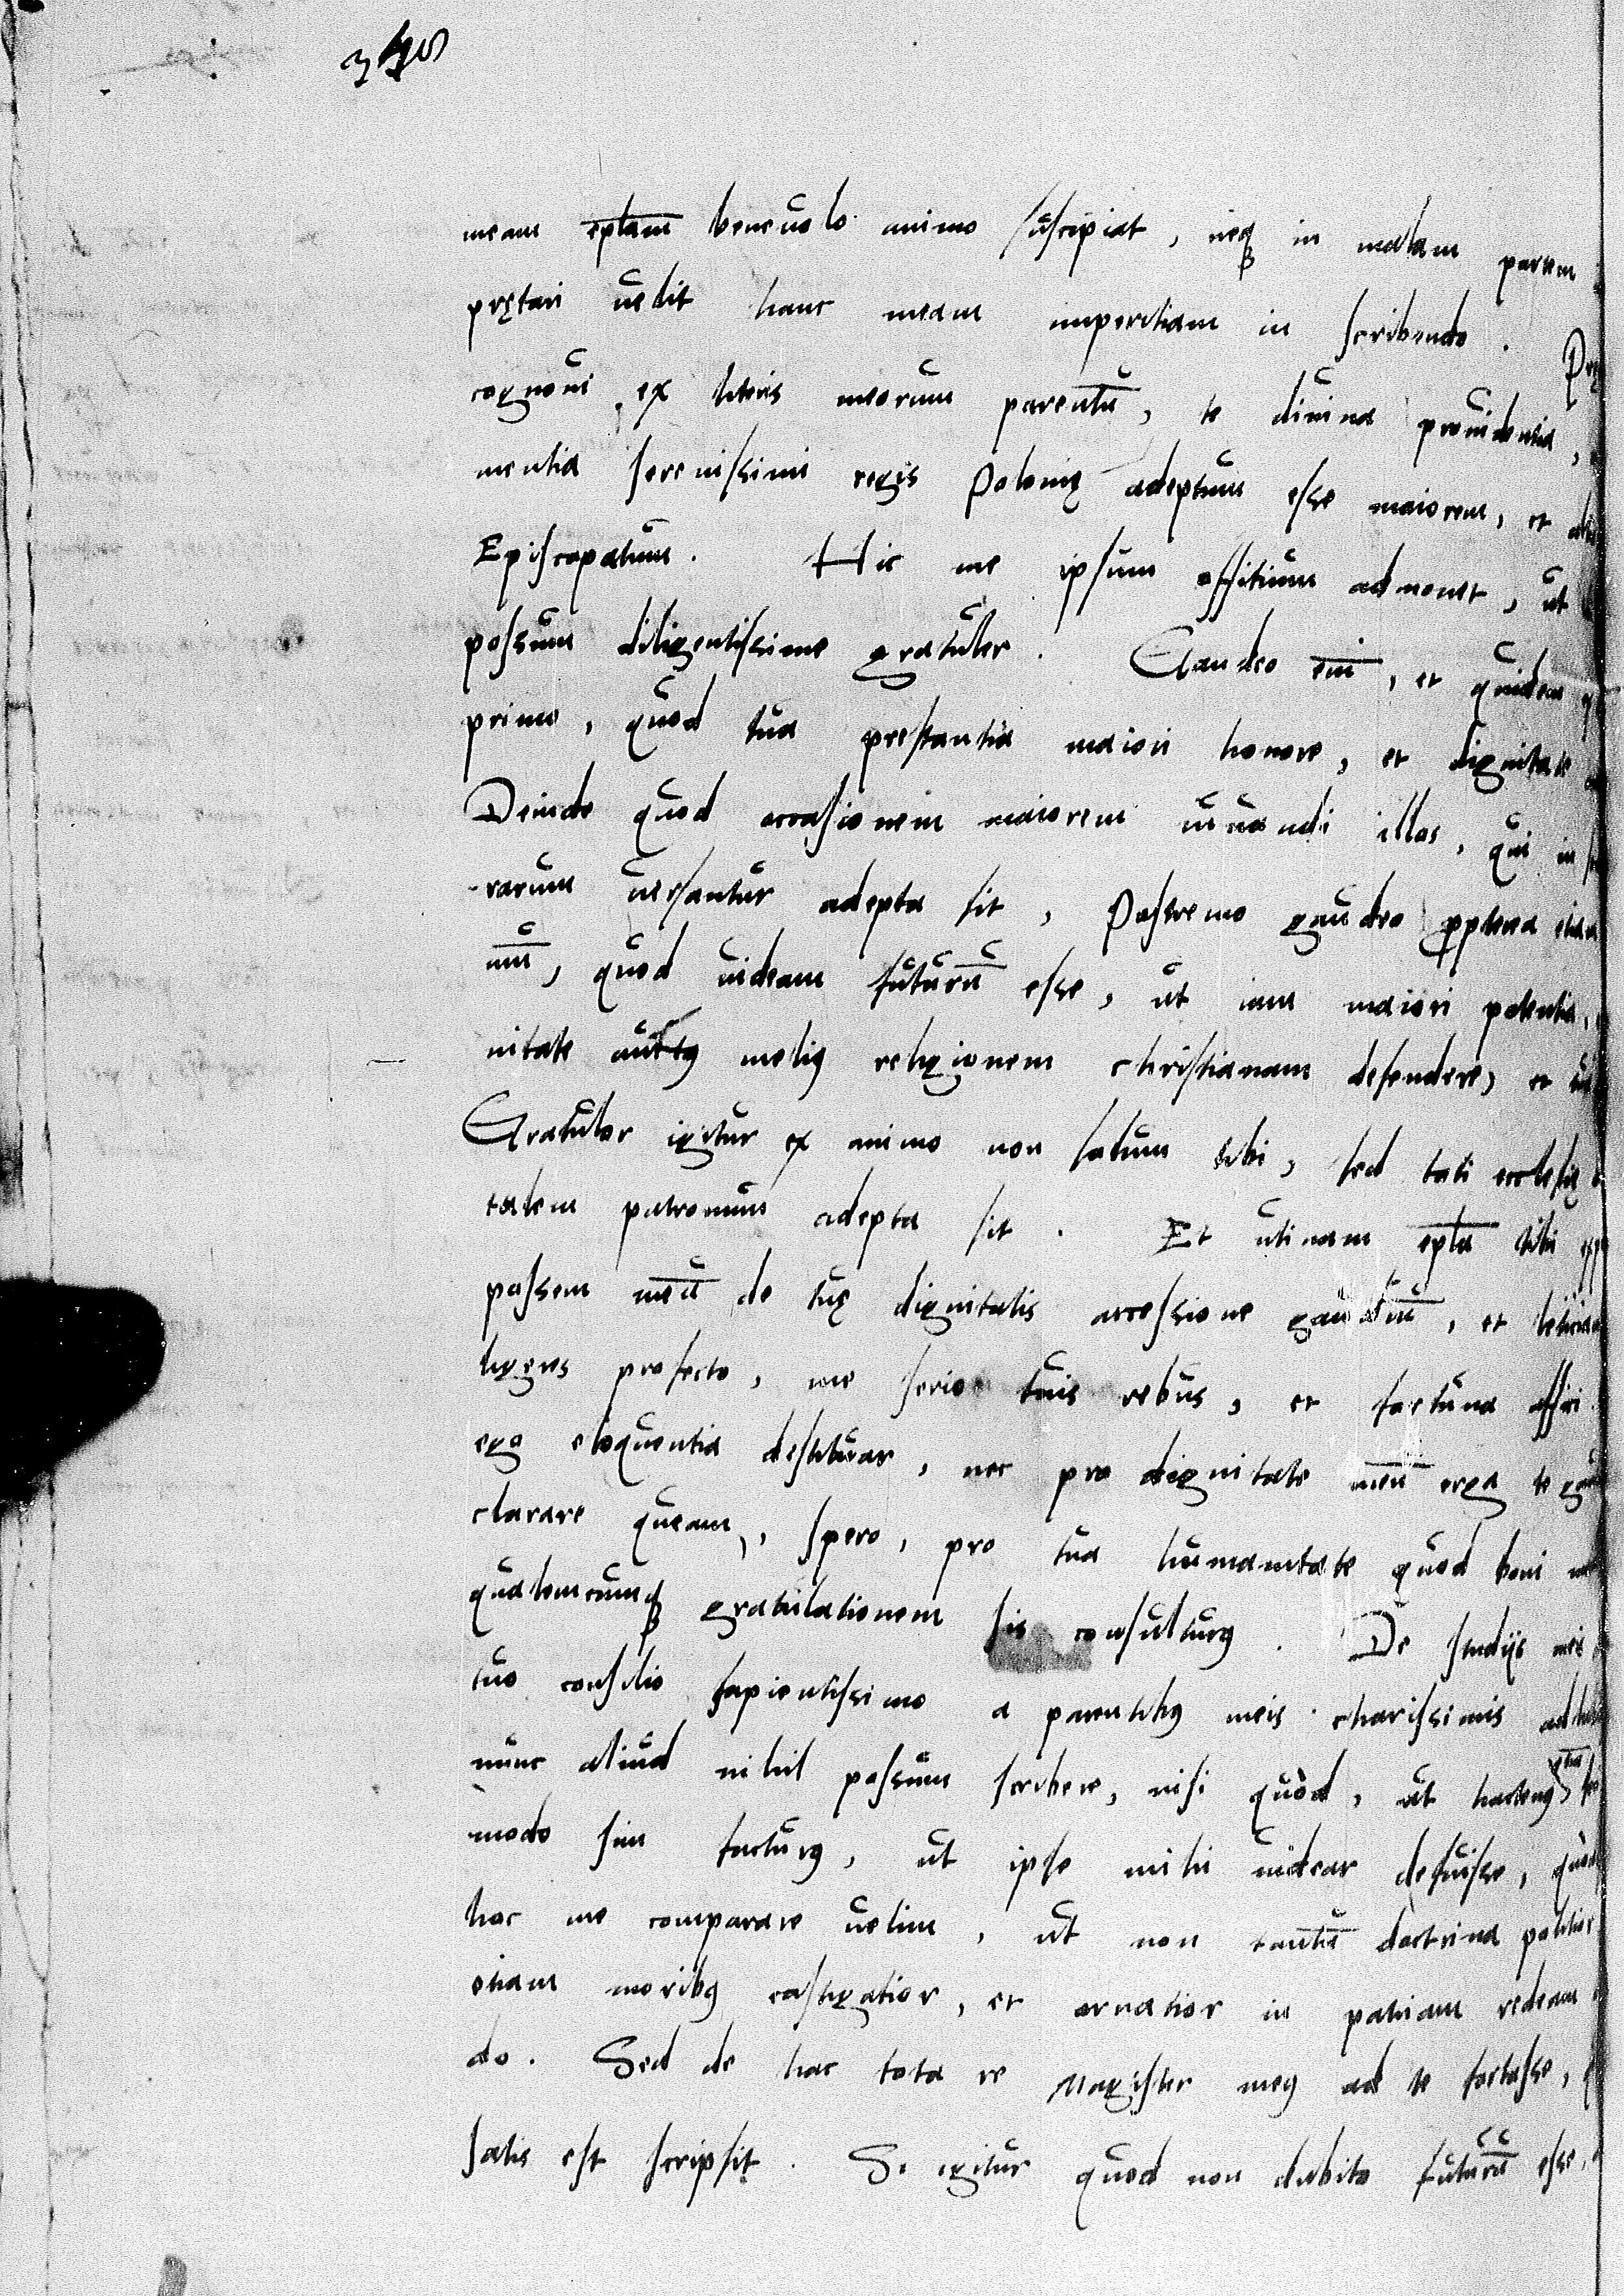 345
meam eplam beneuolo animo suscipiat, neqꝫ in malam partem
prętari uelit hanc meam imperitiam in scribendo. Prę
cognoui ex literis meorum parentū, te diuina prouidentia,
mentia serenissimi regis Polonię adeptum esse maiorem, et
Episcopatum. Hic me ipsum offitium admonet, ut
possum diligentissime gratuler. Gaudeo em̄, et quidem
primo, quod tua prestantia maiori honore, et dignitate
Deinde quod occasionem maiorem iuuandi illos, qui in
rarum uersantur adepta sit, Postremo gaudeo ꝓpterea etiam
quod uideam futurū esse, ut iam maiori potentia,
nitate auctꝰ meliꝰ religionem christianam defendere, et
Gratulor igitur ex animo non solum tibi, sed toti ecclesię
talem patronum adepta sit. Et utinam epla tibi
possem meū de tuę dignitatis accessione gaudiū, et leticiam
ligeres profecto, me serio tuis rebus, et fortuna affici.
ego eloquentia destituar, nec pro dignitate meū erga te
clarare queam, spero, pro tua humanitate quod boni
qualemcumqꝫ gratulationem sis consulturꝰ. De studijs meis
tuo consilio sapientissimo a parentibꝰ meis charissimis
nunc aliud nihil possum scribere, nisi quòd, ut hactenꝰ
modo sim facturꝰ, ut ipse mihi uidear defuisse,
hoc me comparare uelim, ut non tantū doctrina politior
etiam moribꝰ castigatior, et ornatior in patriam redeam
do. Sed de hac tota re Magister meꝰ ad te fortasse,
satis est scripsit. Si igitur quod non dubito futurū esse,